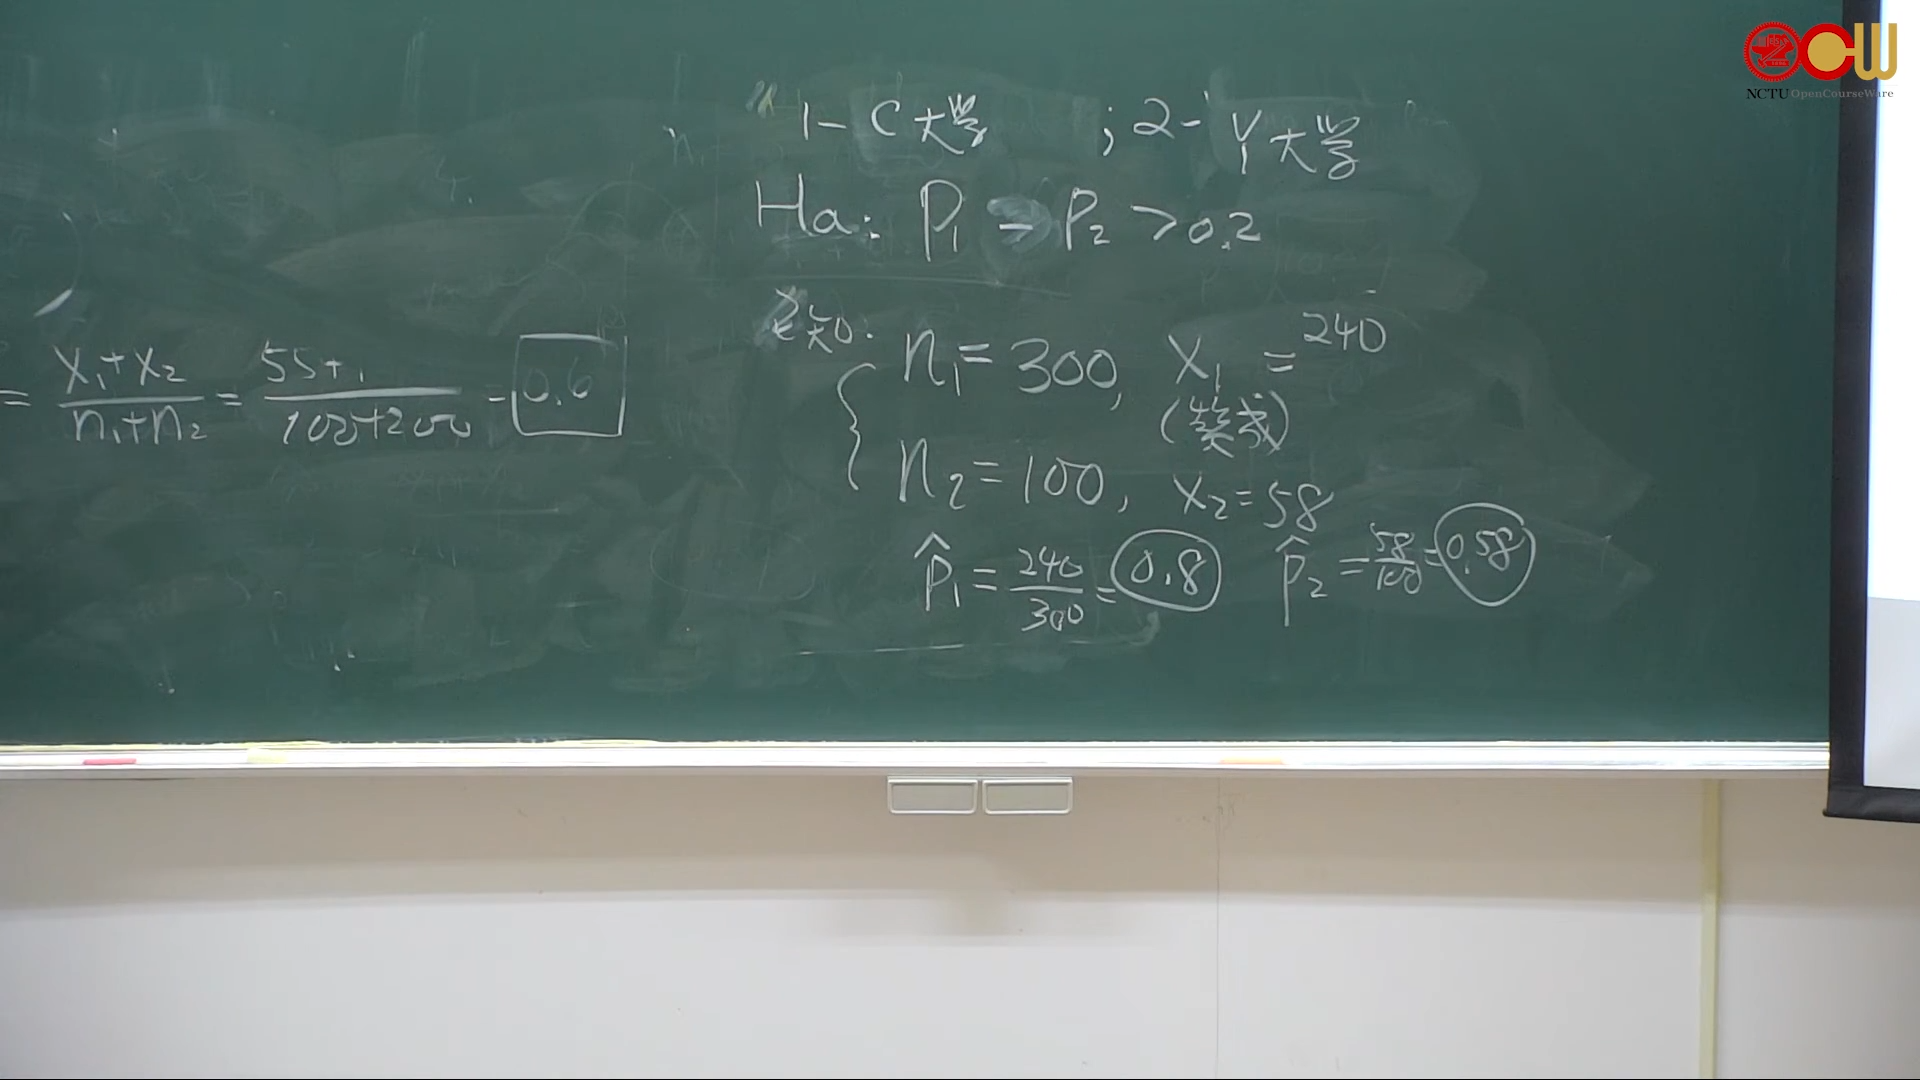 NCTU OpenCourseWare
= X₁+X₂ / n₁+n₂ = 55+ / 100+200 = 0.6
1- C大学 ; 2- Y大学
Ha: P₁ - P₂ > 0.2
已知:
n₁ = 300, X₁ = 240
(贊成)
n₂ = 100, X₂ = 58
p̂₁ = 240/300 = 0.8 p̂₂ = 58/100 = 0.58